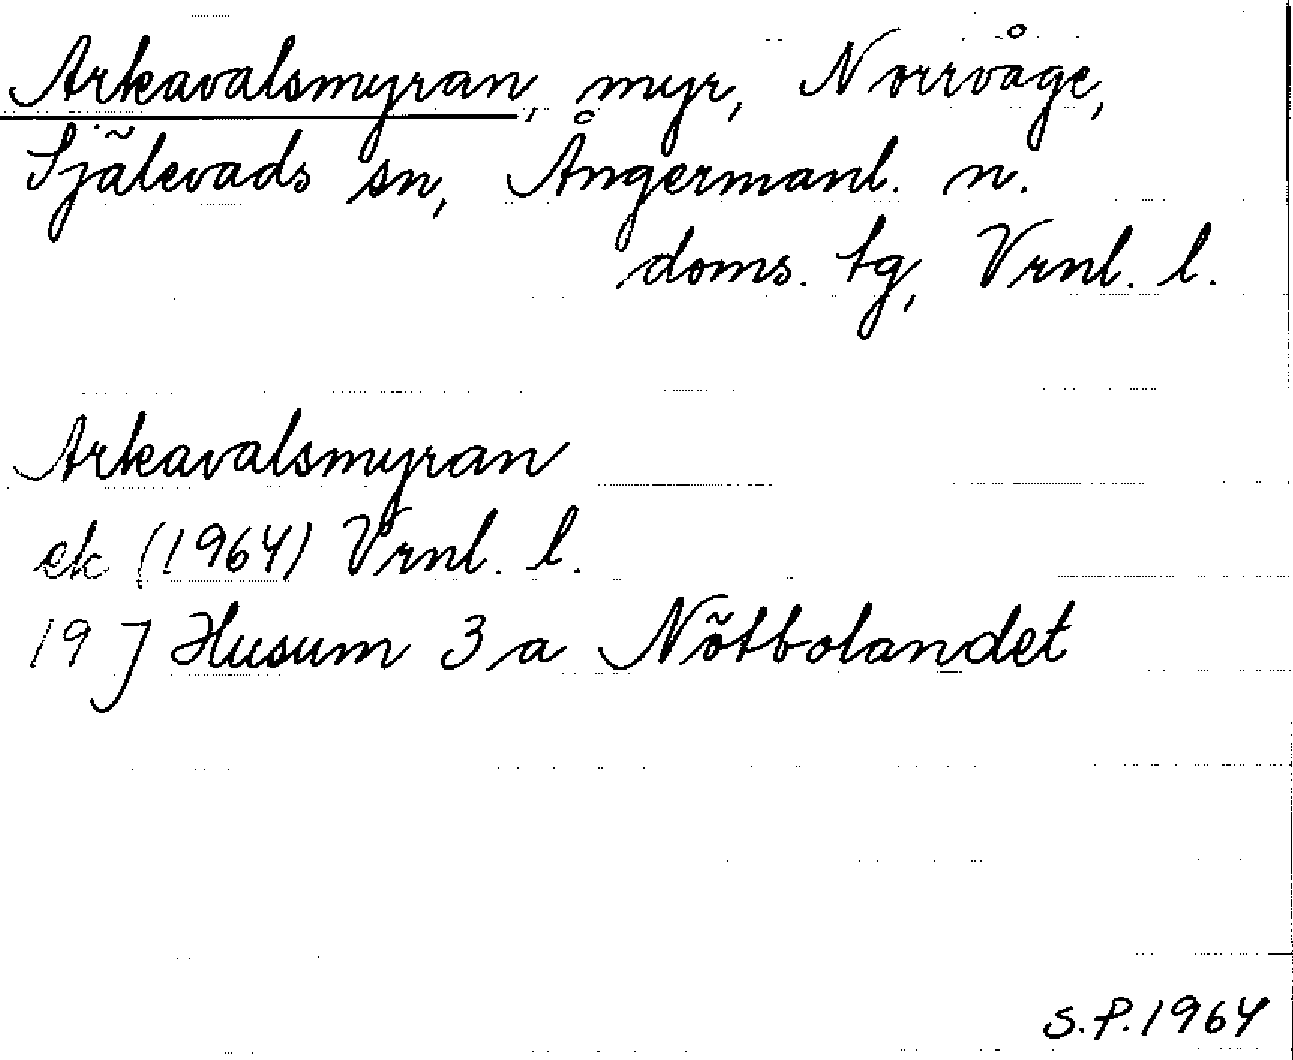 Arkavalsmyran, myr, Norrvåge,
Själevads sn, Ångermanl. n.
doms. tg, Vrnl. l.
Arkavalsmyran
ek (1964) Vrnl. l.
19 J Husum 3 a Nötbolandet
S.P. 1964